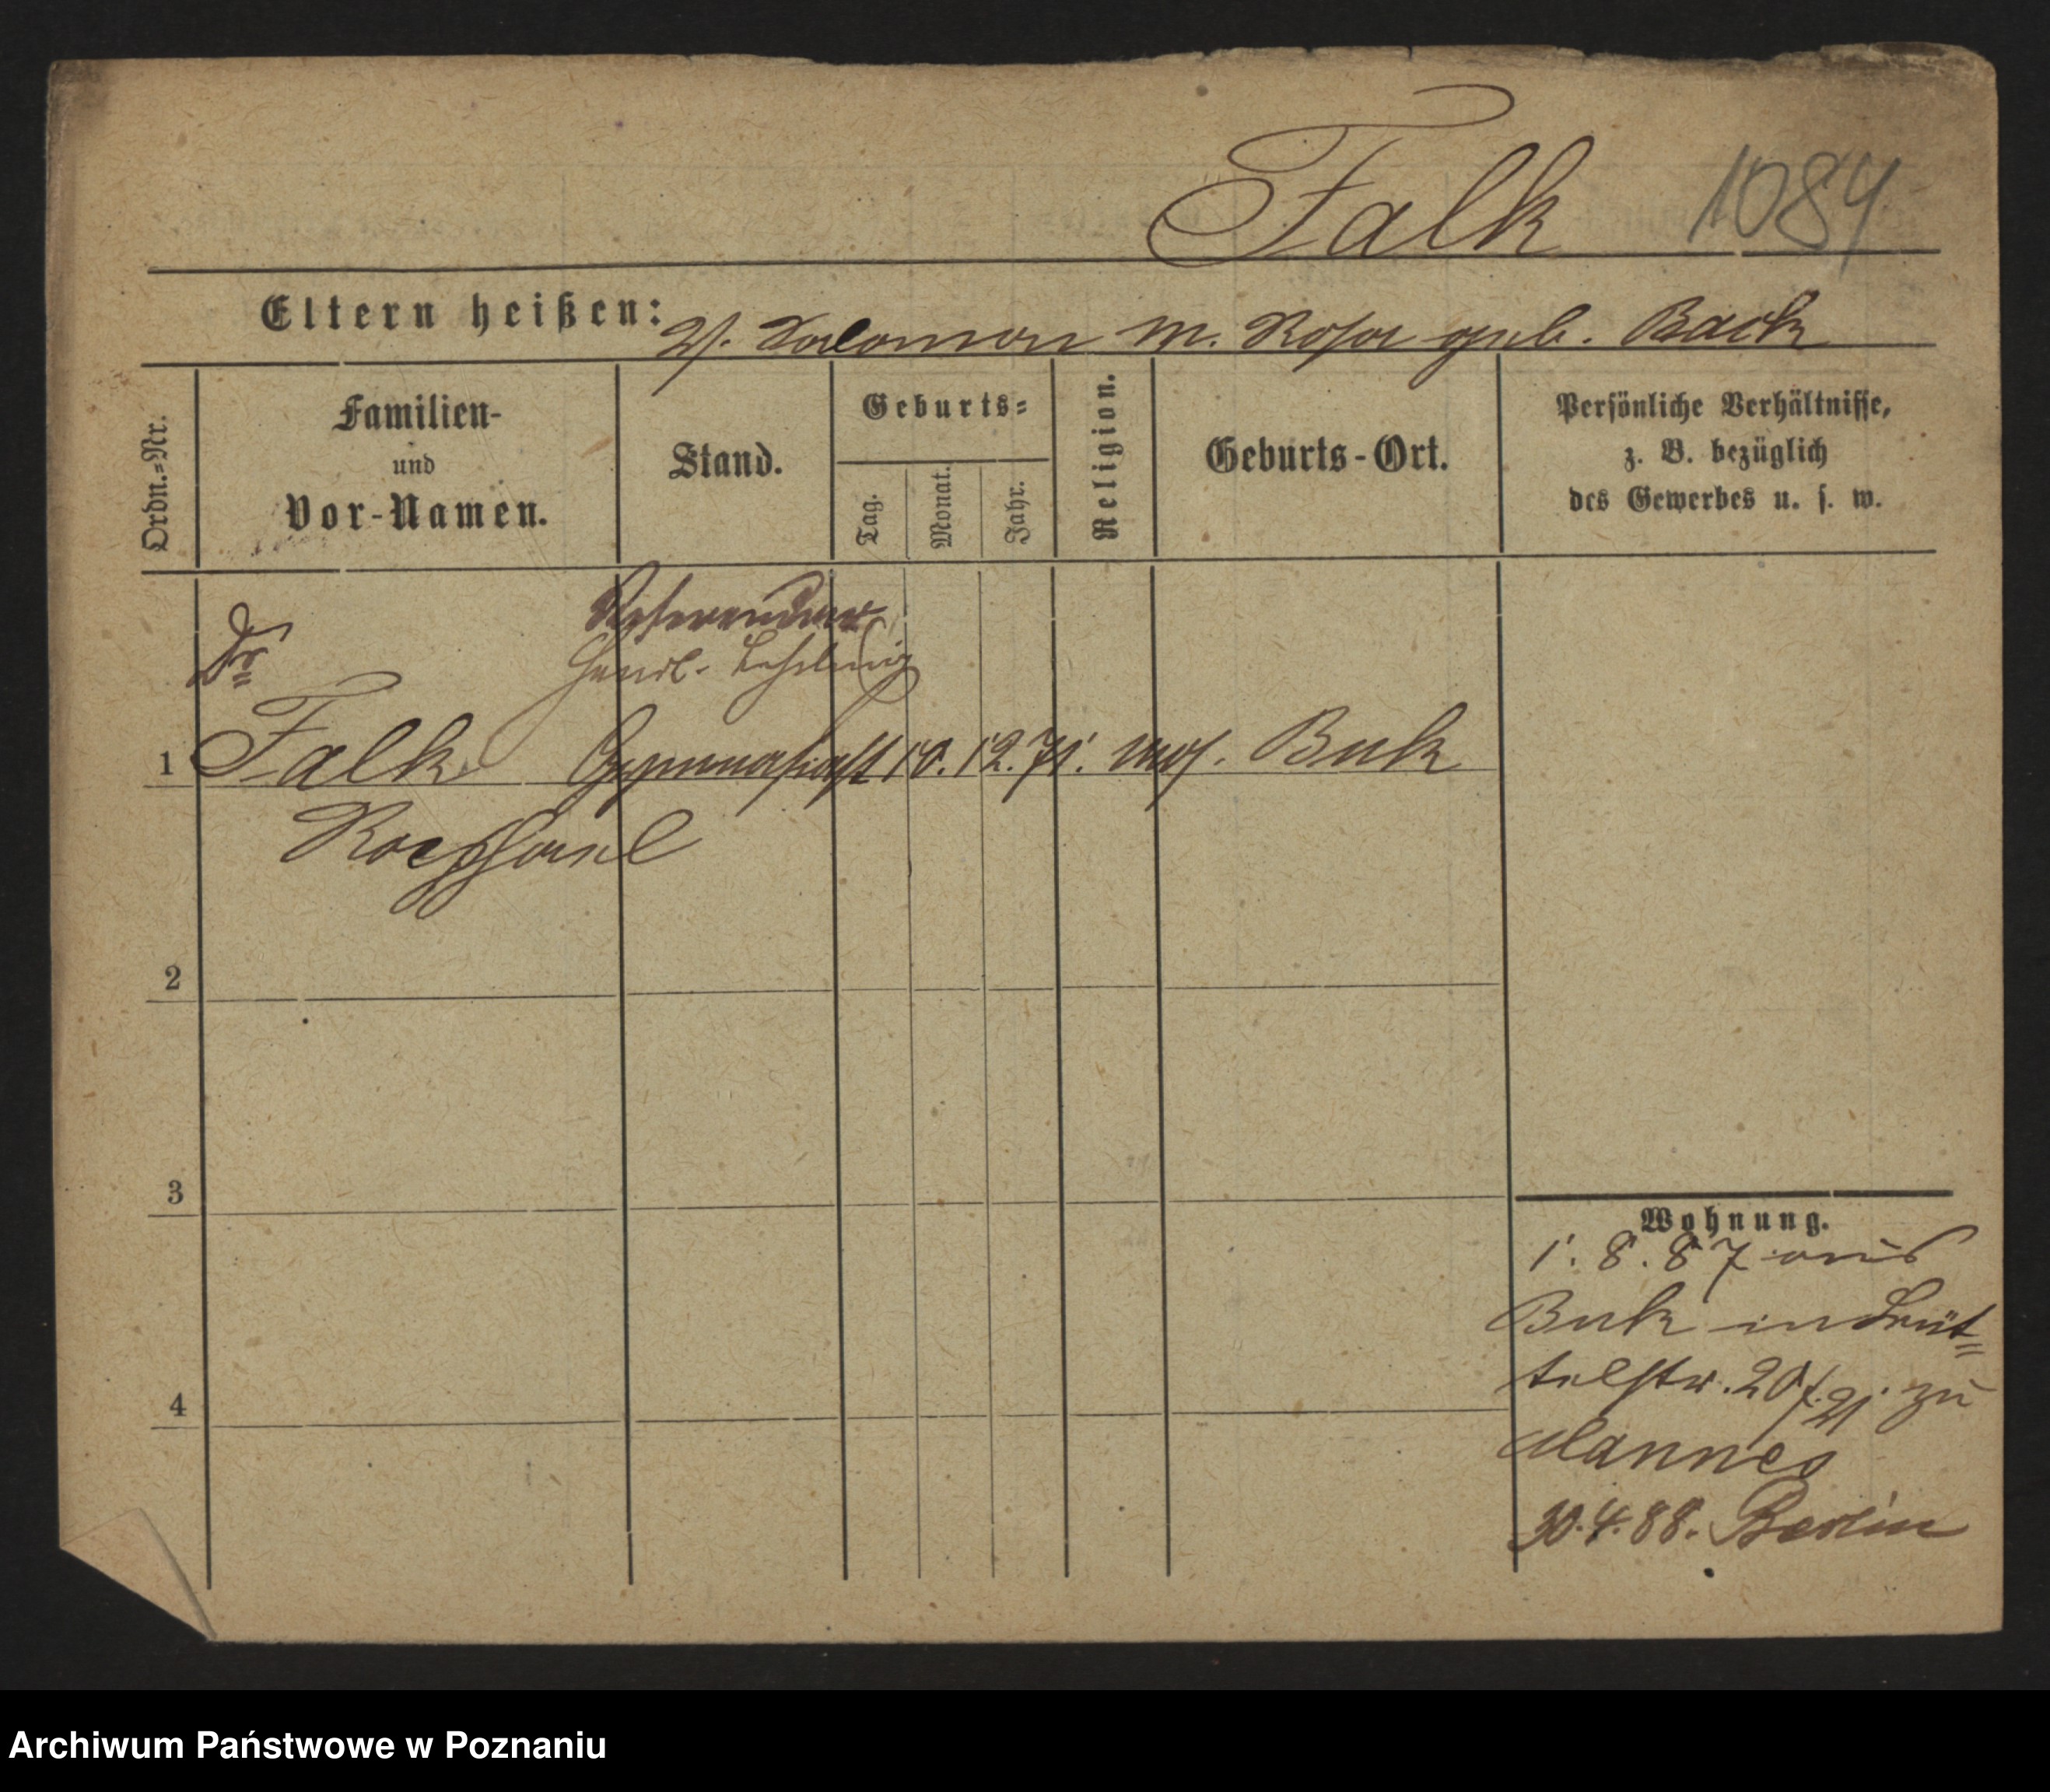 Falk 1084
Eltern heißen: V. Salomon M. Rosa geb. Back
Ordn.=Nr.
Familien-
und
Vor-Namen.
Stand.
Geburts=
Tag.
Monat.
Jahr.
Religion.
Geburts-Ort.
Persönliche Verhältnisse,
z. B. bezüglich
des Gewerbes u. s. w.
Referendar
Dr
Handl. Lehrling
1 Falk Gymnasiast 10. 12. 71. mos. Buk
Raephael
2
3
4
Wohnung.
1. 8. 87 aus
Buk in
telstr. 20/21 zu
Mannes
30. 4. 88. Berlin
Archiwum Państwowe w Poznaniu